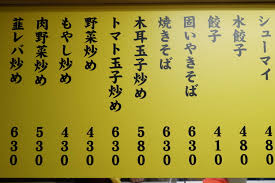 シューマイ 480
水餃子 480
餃子 410
固いやきそば 630
焼きそば 630
木耳玉子炒め 580
トマト玉子炒め 630
野菜炒め 430
もやし炒め 430
肉野菜炒め 530
韮レバ炒め 630